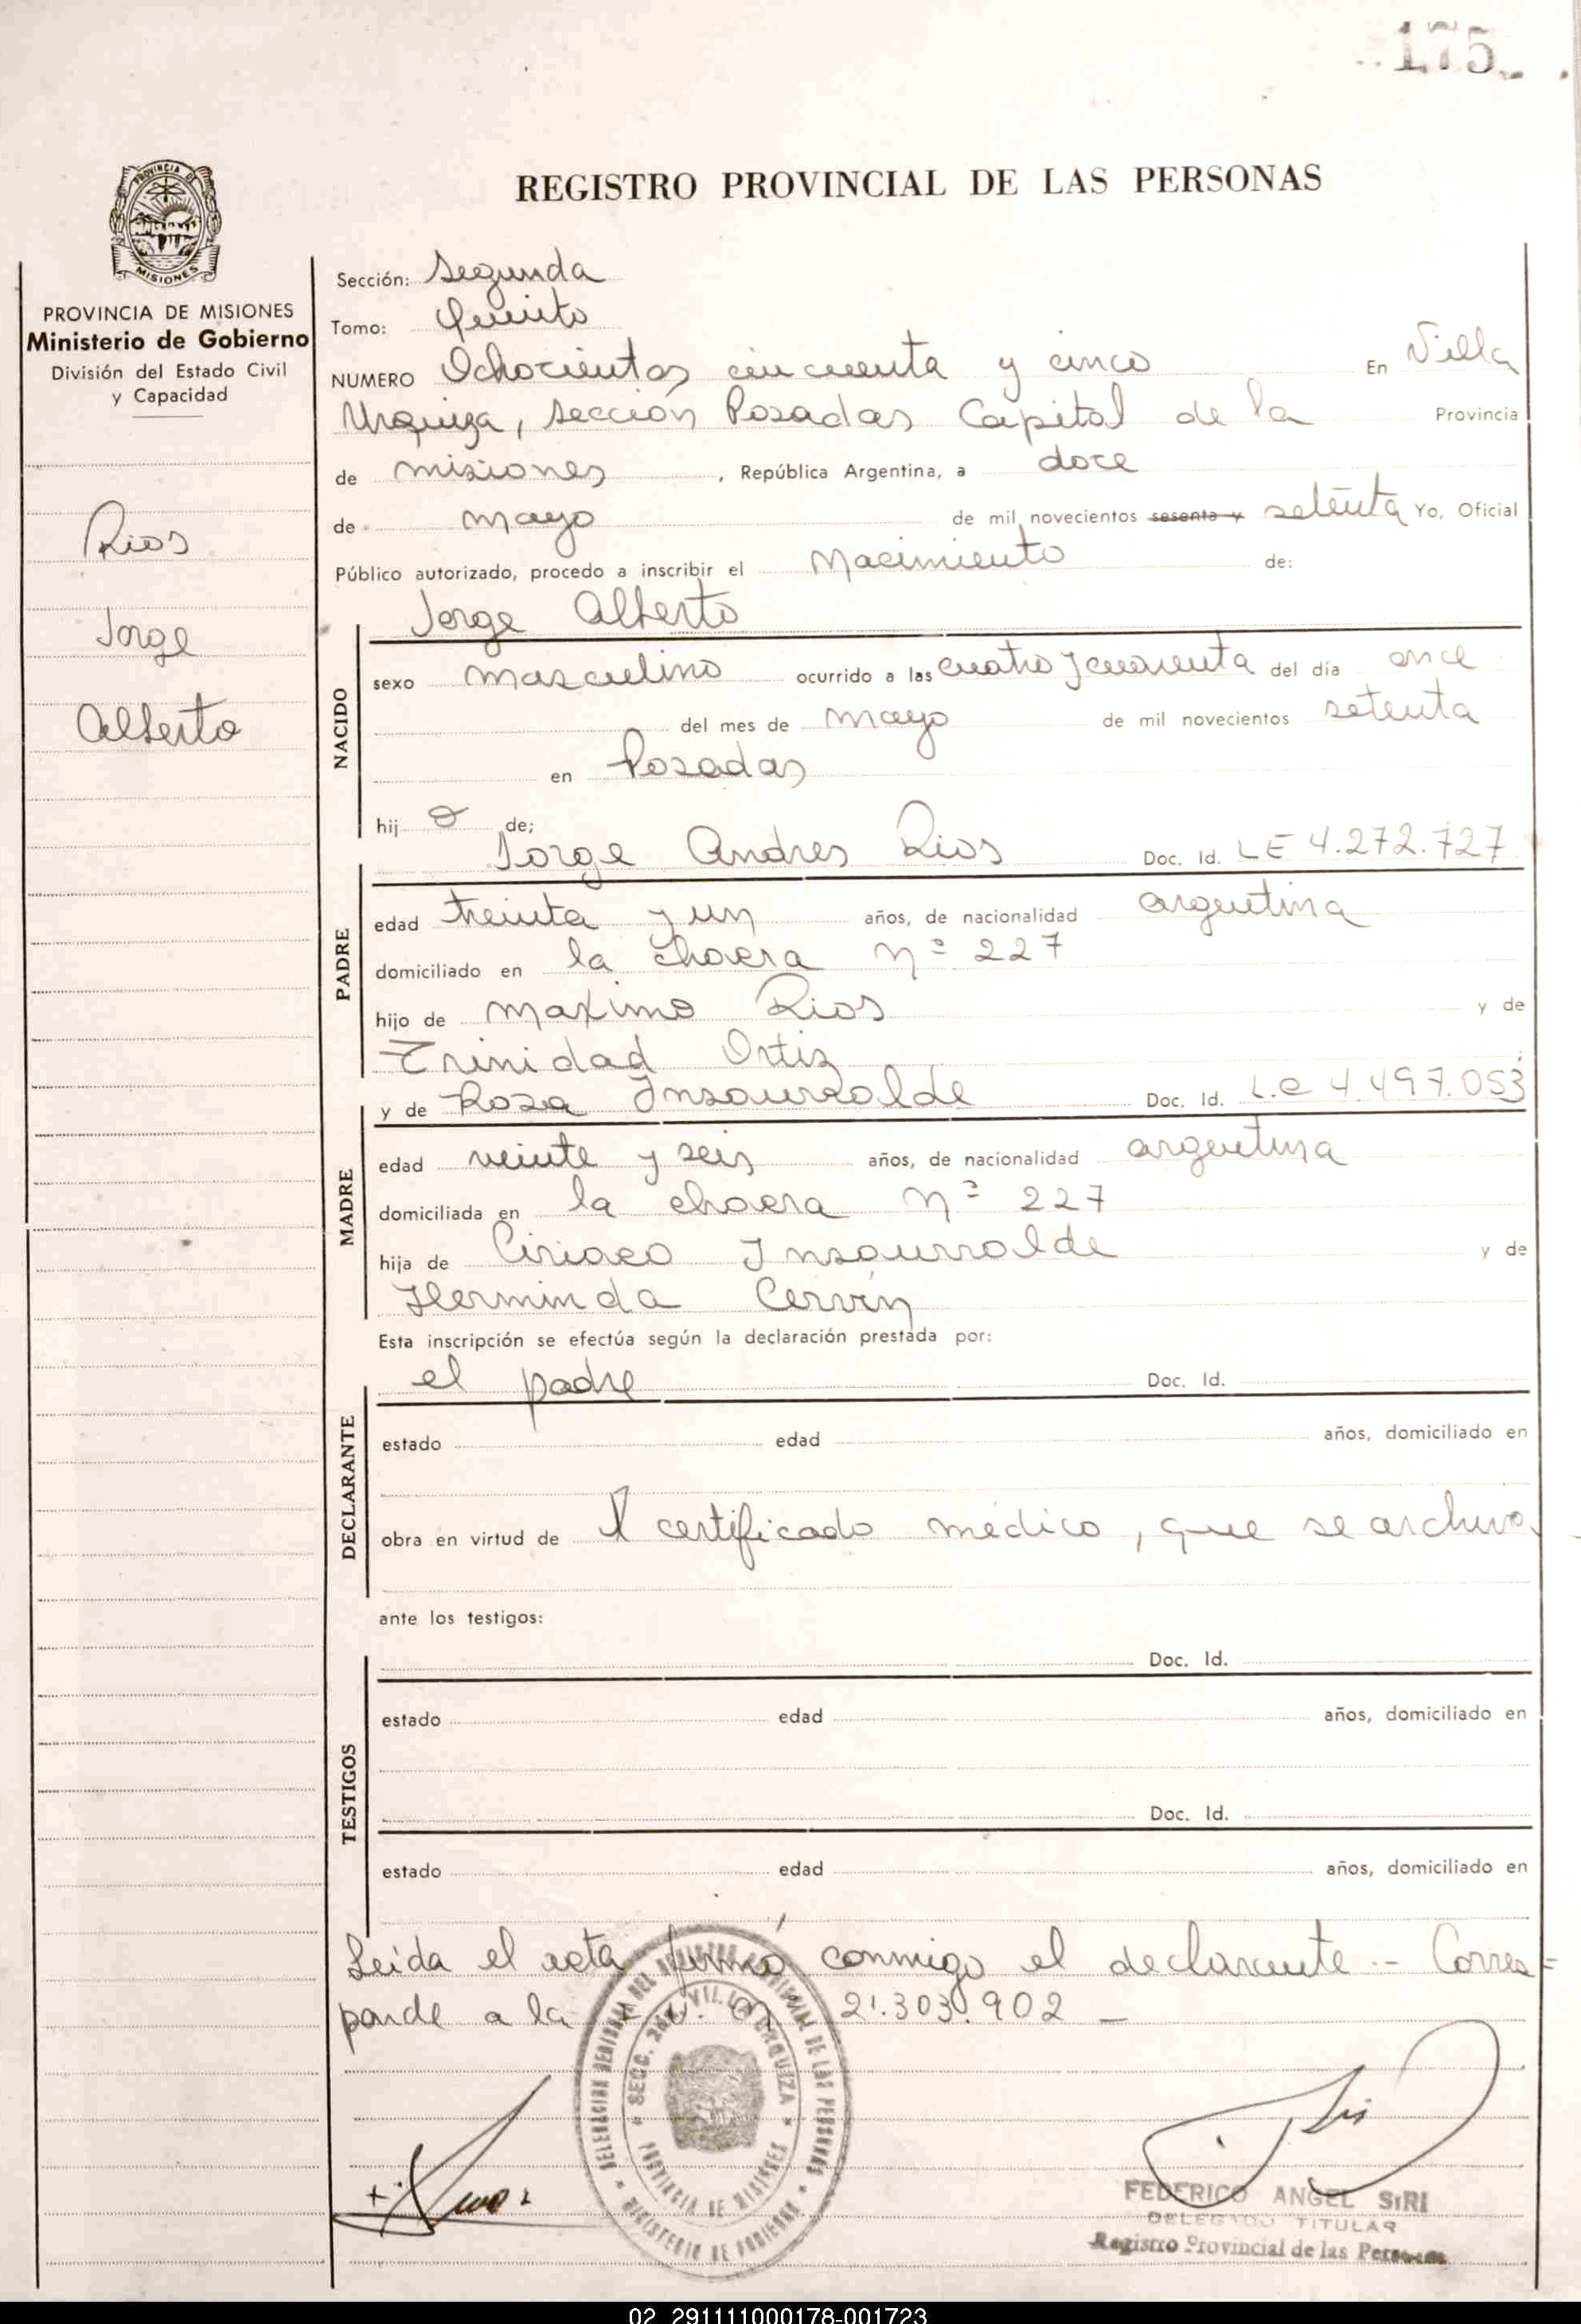 175
REGISTRO PROVINCIAL DE LAS PERSONAS
PROVINCIA DE
MISIONES
PROVINCIA DE MISIONES
Ministerio de Gobierno
División del Estado Civil
y Capacidad
Rios
Jorge
Alberto
Sección: Segunda
Tomo: Quinto
NUMERO Ochocientos cincuenta y cinco En Villa
Urquiza, sección Posadas Capital de la Provincia
de misiones, República Argentina, a doce
de mayo de mil novecientos sesenta y setenta Yo, Oficial
Público autorizado, procedo a inscribir el Nacimiento de:
Jorge Alberto
NACIDO
sexo masculino ocurrido a las cuatro y cuarenta del día once
del mes de mayo de mil novecientos setenta
en Posadas
hij o de;
Jorge Andres Rios Doc. Id. LE 4.272.727
PADRE
edad treinta y un años, de nacionalidad argentina
domiciliado en la chacra nº 227
hijo de maximo Rios y de
Trinidad Ortiz
y de Rosa Insaurralde Doc. Id. L.C 4.497.053
MADRE
edad veinte y seis años, de nacionalidad argentina
domiciliada en la chacra nº 227
hija de Ciriaco Insaurralde y de
Herminda Cervin
Esta inscripción se efectúa según la declaración prestada por:
el padre Doc. Id.
DECLARANTE
estado edad años, domiciliado en
obra en virtud de certificado médico, que se archiva.
ante los testigos:
Doc. Id.
TESTIGOS
estado edad años, domiciliado en
Doc. Id.
estado edad años, domiciliado en
Leída el acta firmó conmigo el declarante.- Corres=
ponde a la 21.303.902 -
DELEGACION REGIONAL DEL REGISTRO PROVINCIAL DE LAS PERSONAS
SECC. 2da. VILLA URQUIZA
PROVINCIA DE MISIONES
MINISTERIO DE GOBIERNO
FEDERICO ANGEL SIRI
DELEGADO TITULAR
Registro Provincial de las Personas
02_291111000178-001723